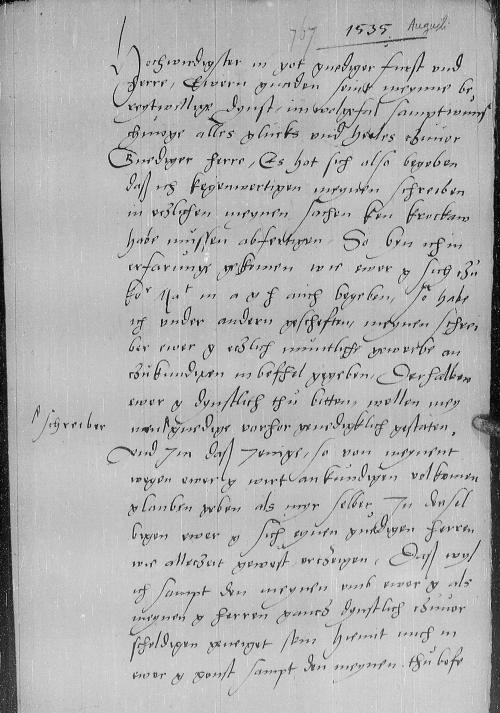 767 1535 Augusti
Hochwirdigster in got gnediger furst und
herre, Ewern gnaden seint meynne be
reytwillige dynst, im wolgefal sampt wuns
chunge alles glucks und heiles czuvor
Gnediger herre, Es hot sich also begeben
daß ich kegenwertigen meynen schreiben
in eczlichen meynen sachen ken krockaw
habe mussen abfertigen. So byn ich in
erfarunge gekomen wie ewer g sich czu
ko^r Ma^t in a g h auch begeben, so habe
ich under andern gescheften, meynen schrei
ber ewer g eczlich muntliche gewerbe an
czukundigen in befhel gegeben, Derhalben
ewer g dynstlich thu bitten, wollen mey
schreiber
gnedige vorhor genediglich gestaten,
Und Im daß Jenige, so von meynent
wegen ewer g wirt ankundigen volkomen
glauben geben als myr selber, In deme
bygen ewer g sich eynen gnedigen herren
wie alleczeit gewest erczeigen, Daß wyl
ich sampt den meynen umb ewer g als
meynen g herren gancz dynstlich czuvor
scholdigen geneiget sein hiemit mich in
ewer g gonst sampt den meynen thu befe